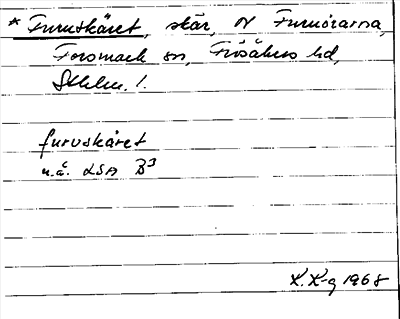 * Furuskäret, skär, N Furuörarna,
Forsmark sn, Frösåkers hd,
Sthlm. l.
furuskäret
u.å. LSA B³
K. K-g 1968